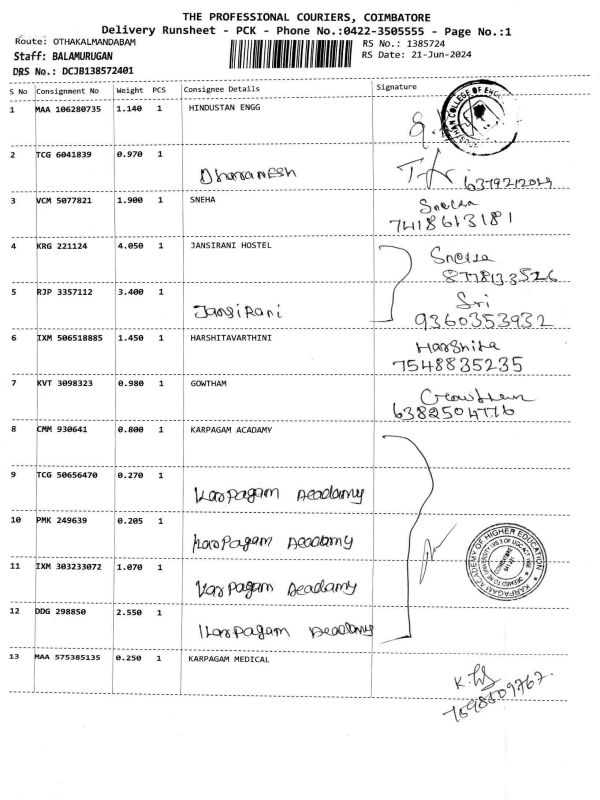 THE PROFESSIONAL COURIERS, COIMBATORE
Delivery Runsheet - PCK - Phone No.:0422-3505555 - Page No.:1
Route: OTHAKALMANDABAM
RS No.: 1385724
Staff: BALAMURUGAN
RS Date: 21-Jun-2024
DRS No.: DCJB138572401
S No Consignment No Weight PCS Consignee Details Signature
1 MAA 106280735 1.140 1 HINDUSTAN ENGG
2 TCG 6041839 0.970 1 Dharanesh 6379212049
3 VCM 5077821 1.900 1 SNEHA Sneha
7418613181
4 KRG 221124 4.050 1 JANSIRANI HOSTEL Sneha
8778133526
5 RJP 3357112 3.400 1 Jansirani Sri
9360353932
6 IXM 506518885 1.450 1 HARSHITAVARTHINI Harshita
7548835235
7 KVT 3098323 0.980 1 GOWTHAM Gowtham
6382504776
8 CMM 930641 0.800 1 KARPAGAM ACADAMY
9 TCG 50656470 0.270 1 Karpagam Acadamy
10 PMK 249639 0.205 1 Karpagam Acadamy
11 IXM 303233072 1.070 1 Karpagam Acadamy
12 DDG 298850 2.550 1 Karpagam Acadamy
KARPAGAM ACADEMY OF HIGHER EDUCATION
13 MAA 575385135 0.250 1 KARPAGAM MEDICAL
7598509767